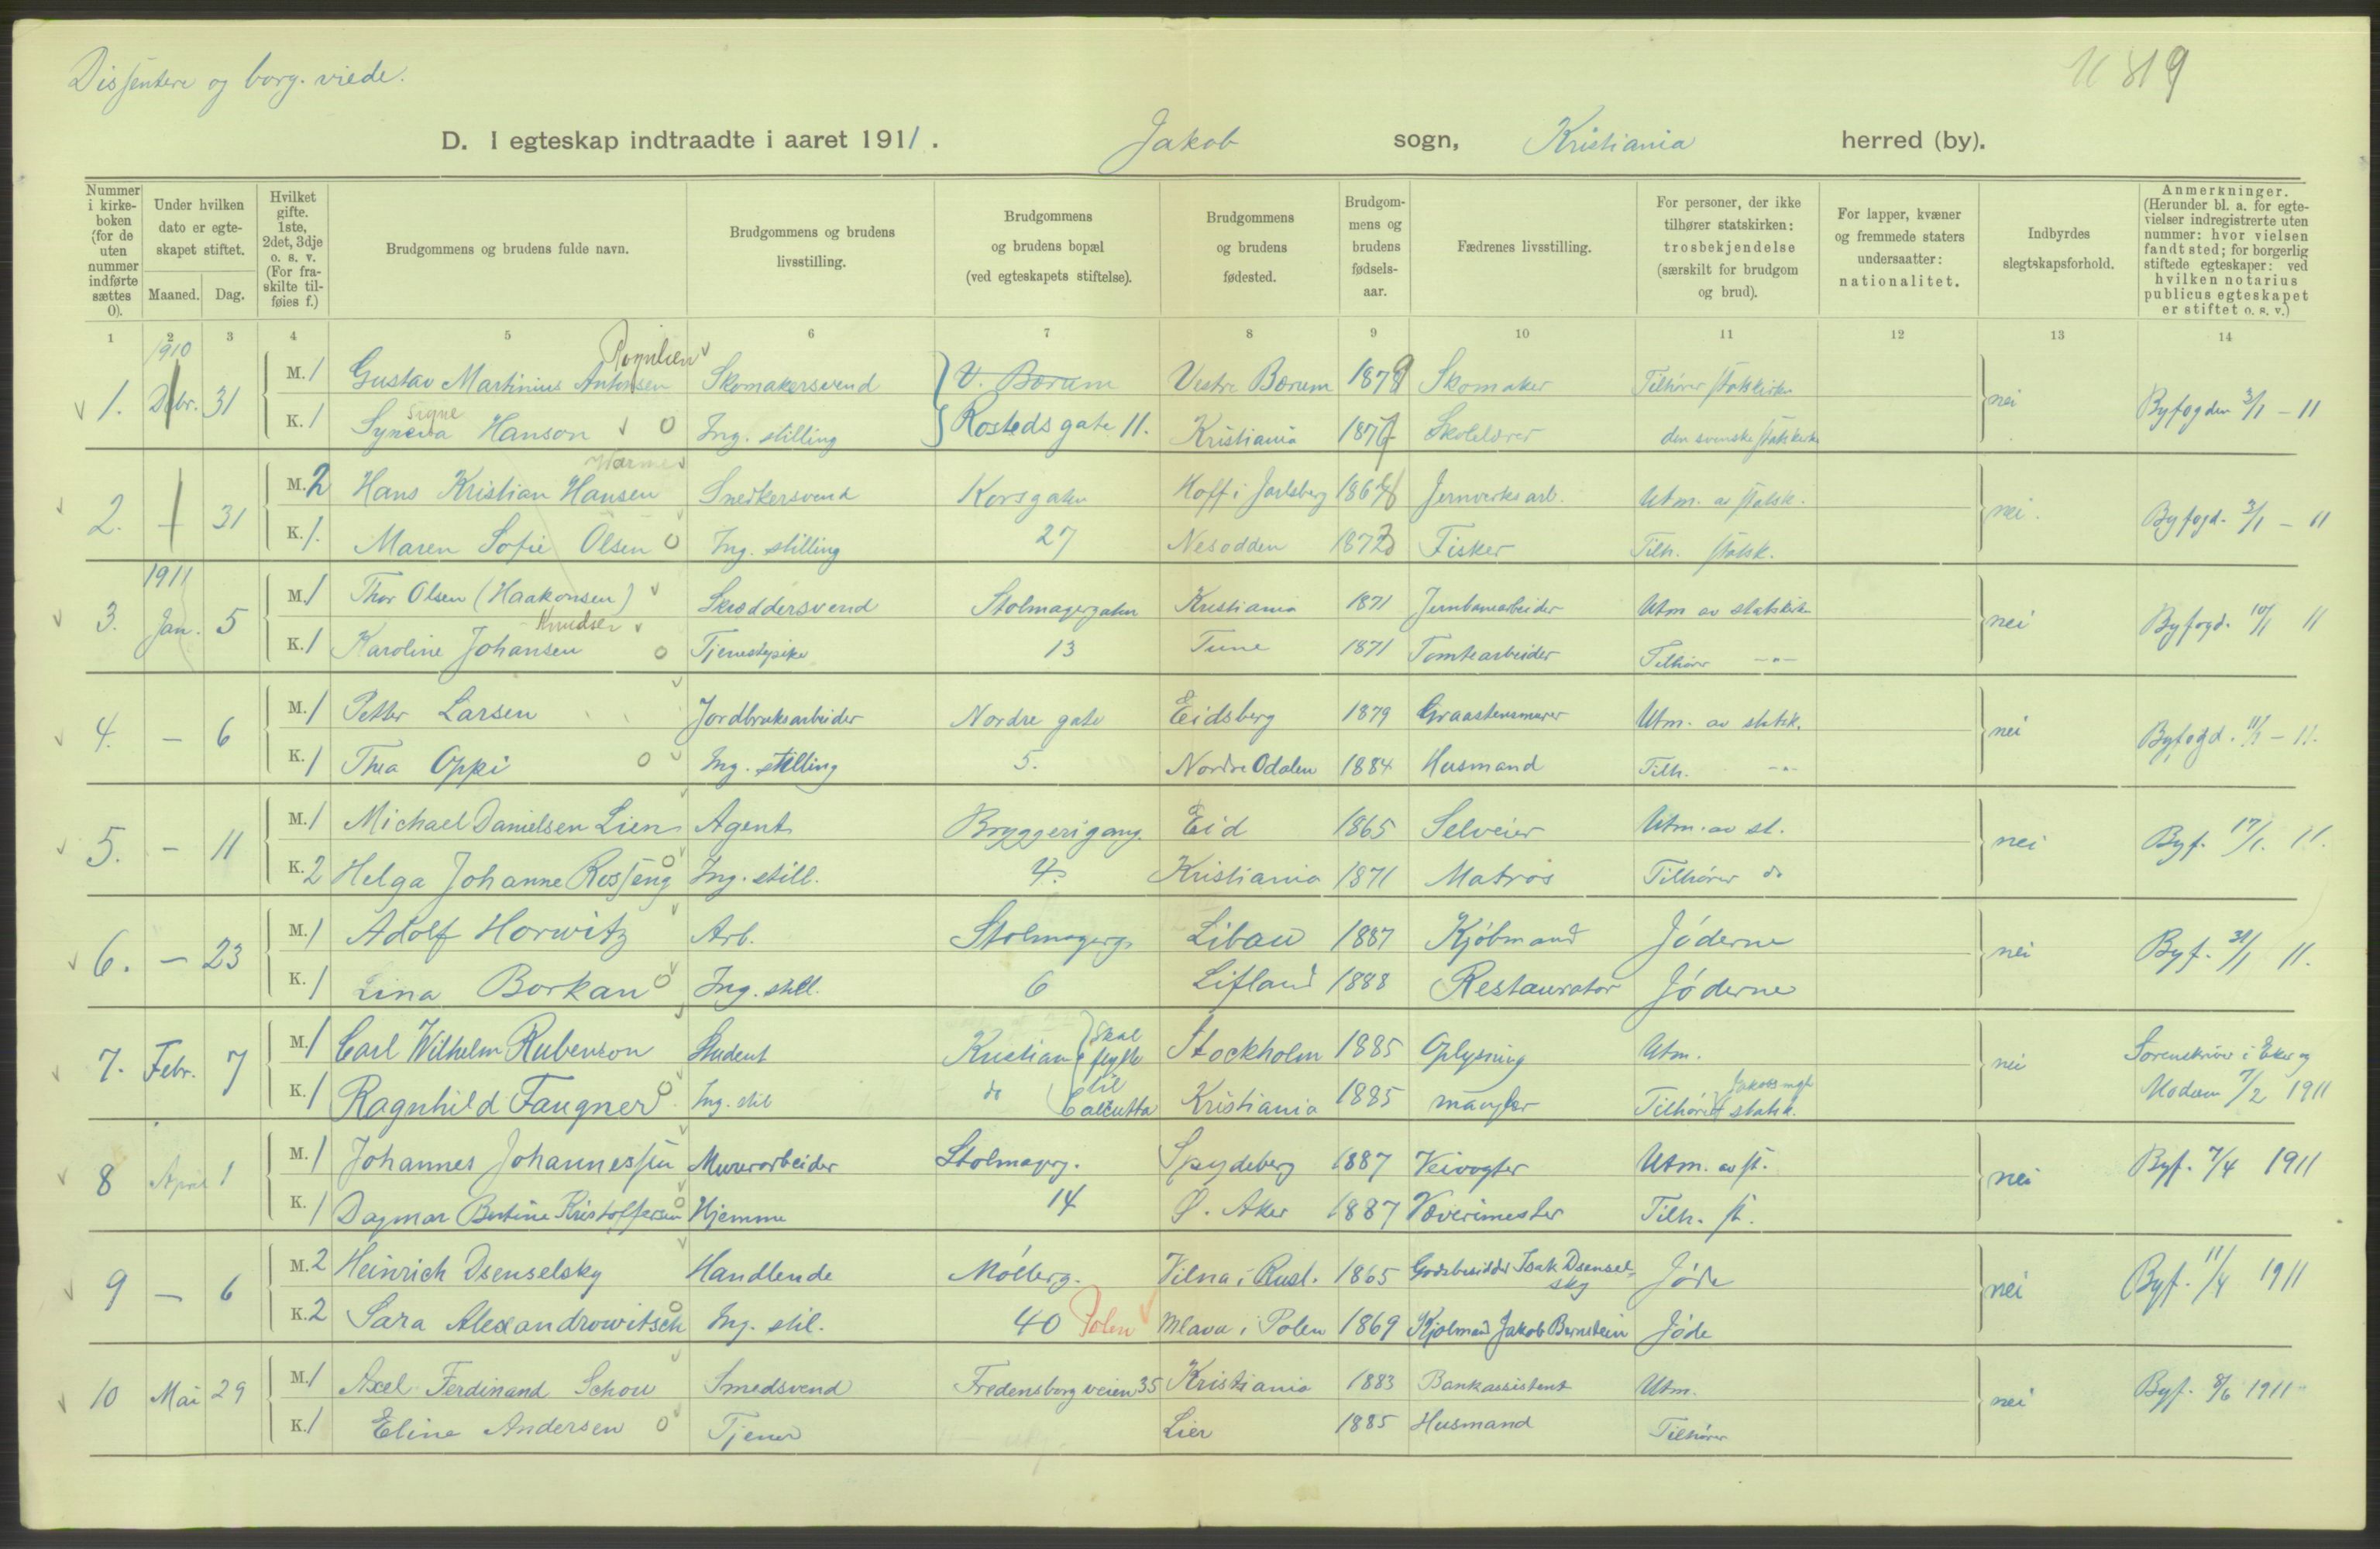 Dissentere og borg. viede.
819
D. I egteskap indtraadte i aaret 1911. Jakob sogn, Kristiania herred (by).
Nummer i kirkeboken (for de uten nummer indførte sættes 0).
Under hvilken dato er egteskapet stiftet.
Maaned. Dag.
Hvilket gifte. 1ste, 2det, 3dje o. s. v. (For fraskilte tilføies f.)
Brudgommens og brudens fulde navn.
Brudgommens og brudens livsstilling.
Brudgommens og brudens bopæl (ved egteskapets stiftelse).
Brudgommens og brudens fødested.
Brudgommens og brudens fødselsaar.
Fædrenes livsstilling.
For personer, der ikke tilhører statskirken: trosbekjendelse (særskilt for brudgom og brud).
For lapper, kvæner og fremmede staters undersaatter: nationalitet.
Indbyrdes slegtskapsforhold.
Anmerkninger. (Herunder bl. a. for egtevielser indregistrerte uten nummer: hvor vielsen fandt sted; for borgerlig stiftede egteskaper: ved hvilken notarius publicus egteskapet er stiftet o. s. v.)
1 2 3 4 5 6 7 8 9 10 11 12 13 14
1910
1. Debr. 31 M. 1 Gustav Martinius Antonsen Skomakersvend V. Bærum Vestre Bærum 1879 Skomaker Tilhører statskirken nei Byfogden 3/1 - 11
K. 1 Syneva Signe Hanson Ing. stilling Rosteds gate 11. Kristiania 1877 Skolelærer den svenske statskirke
2. 31 M. 2 Hans Kristian Hansen Snedkersvend Korsgaten Hoff i Jarlsberg Jernverksarb. Utm. av statsk. nei. Byfogd. 3/1 - 11
K. 1. Maren Sofie Olsen Ing. stilling 27 Nesodden 1873 Fisker Tilh. statsk.
1911
3. Jan. 5 M. 1 Thor Olsen (Haakonsen) Skræddersvend Stolmagergaten Kristiania 1871 Jernbanearbeider Utm av statskirken nei Byfogd. 10/1 11
Knudsen
K. 1 Karoline Johansen Tjenestepike 13 Tune 1871 Tomtearbeider Tilhører -"-
4. - 6 M. 1 Petter Larsen Jordbruksarbeider Nordre gate Eidsberg 1879 Graastensmurer Utm. av statsk. nei Byfogd. 11/1 - 11.
K. 1 Thea Oppi Ing. stilling 5. Nordre Odalen 1884 Husmand Tilh. -"-
5. - 11 M. 1 Michael Danielsen Lien Agent Bryggerigang. Eid 1865 Selveier Utm. av st. nei Byf. 17/1. 11.
K. 2 Helga Johanne Rosseng Ing. still. 4. Kristiania 1871 Matros Tilhører do
6. - 23 M. 1 Adolf Horwitz Arb. Stolmagerg. Libau 1887 Kjöbmand Jöderne nei Byf. 31/1 11.
K. 1 Lina Borkan Ing. still. 6 Lifland 1888 Restauratør Jöderne
7. Febr. 7 M. 1 Carl Wilhelm Rubenson Student Kristiania Skal flytte Stockholm 1885 Oplysning Utm. nei Sorenskriver i Eker og
K. 1 Ragnhild Faugner Ing. stil do til Calcutta Kristiania 1885 mangler Tilhører statsk. Modum 7/2 1911
8 April 1 M. 1 Johannes Johannessen Murerarbeider Stolmagerg. Spydeberg 1887 Veivogter Utm. av st. nei Byf. 7/4 1911
K. 1 Dagmar Bertine Kristoffersen Hjemme 14 Ø. Aker 1887 Væverimester Tilh. st.
9 - 6 M. 2 Heinrich Dsenselsky Handlende Mölberg. Vilna i Rusl. 1865 Godsbesidder Isak Dsenselsky Jöde nei Byf. 11/4 1911
K. 2 Sara Alexandrowitsch Ing. stil. 40 Polen Mlava i Polen 1869 Kjöbmand Jakob Bernstein Jöde
10 Mai 29 M. 1 Axel Ferdinand Schou Smedsvend Fredensborgveien 35 Kristiania 1883 Bankassistent Utm. nei Byf. 8/6 1911
K. 1 Eline Andersen Tjener Lier 1885 Husmand Tilhører